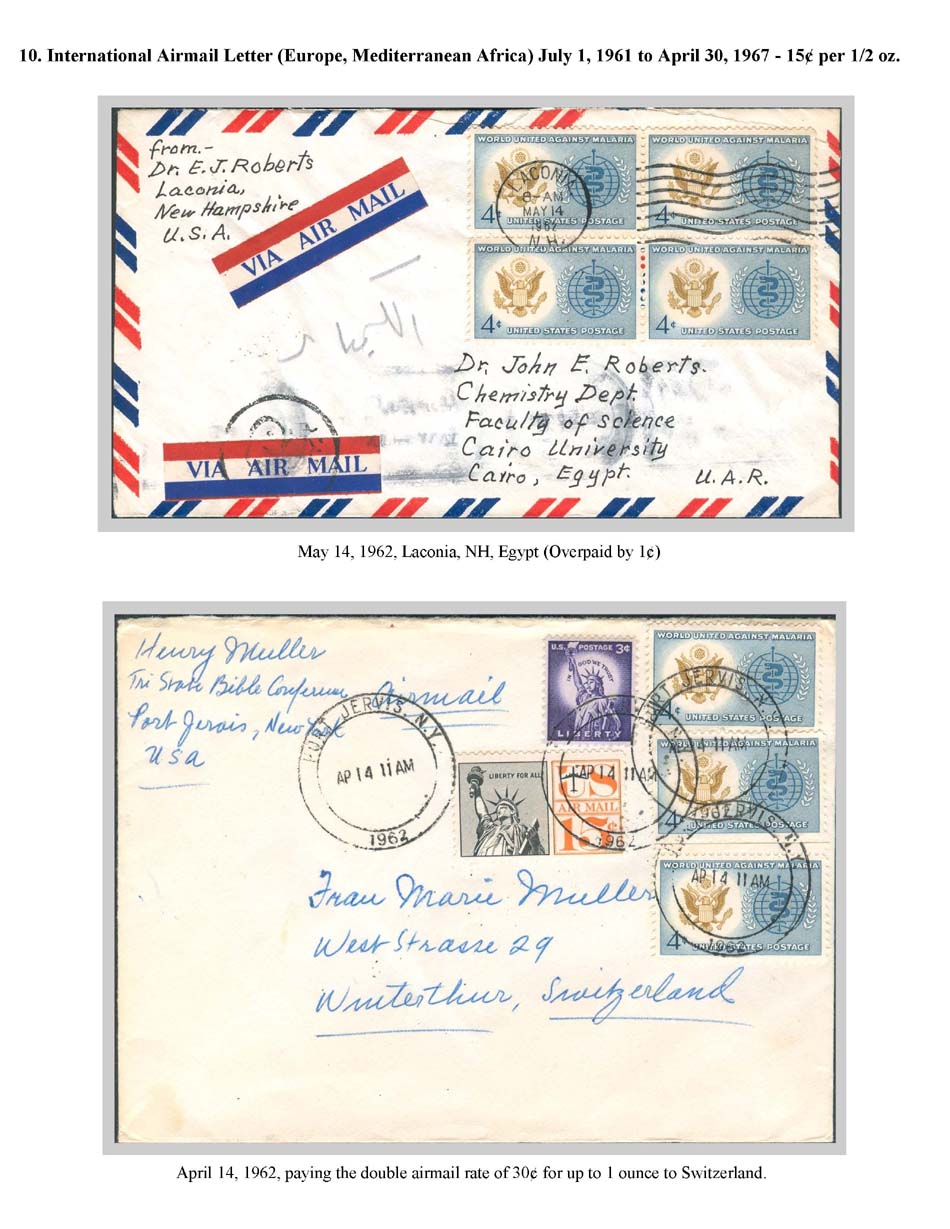 10. International Airmail Letter (Europe, Mediterranean Africa) July 1, 1961 to April 30, 1967 - 15¢ per 1/2 oz.
from.-
Dr. E. J. Roberts
Laconia,
New Hampshire
U.S.A.
VIA AIR MAIL
WORLD UNITED AGAINST MALARIA
4¢
UNITED STATES POSTAGE
WORLD UNITED AGAINST MALARIA
4¢
UNITED STATES POSTAGE
LACONIA
8-AM
MAY 14
1962
N.H.
WORLD UNITED AGAINST MALARIA
4¢
UNITED STATES POSTAGE
WORLD UNITED AGAINST MALARIA
4¢
UNITED STATES POSTAGE
Dr. John E. Roberts.
Chemistry Dept.
Faculty of Science
Cairo University
Cairo, Egypt. U.A.R.
VIA AIR MAIL
May 14, 1962, Laconia, NH, Egypt (Overpaid by 1¢)
Henry Muller
Tri State Bible Conference
Port Jervis, New York
USA
Airmail
PORT JERVIS, N.Y.
AP 14 11 AM
1962
U.S. POSTAGE 3¢
IN GOD WE TRUST
LIBERTY
WORLD UNITED AGAINST MALARIA
4¢
UNITED STATES POSTAGE
PORT JERVIS, N.Y.
11 AM
1962
WORLD UNITED AGAINST MALARIA
4¢
UNITED STATES POSTAGE
LIBERTY FOR ALL
US
AIR MAIL
15¢
AP 14 11 AM
1962
WORLD UNITED AGAINST MALARIA
4¢
UNITED STATES POSTAGE
JERVIS, N.Y.
AP 14 11 AM
1962
Frau Marie Muller
West Strasse 29
Winterthur, Switzerland
April 14, 1962, paying the double airmail rate of 30¢ for up to 1 ounce to Switzerland.